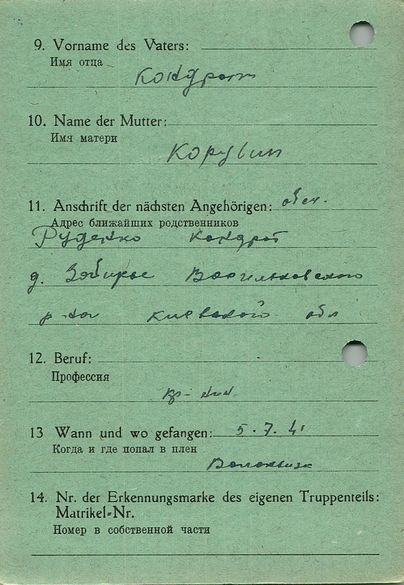 9. Vorname des Vaters:
Имя отца
Кондрат
10. Name der Mutter:
Имя матери
11. Anschrift der nächsten Angehörigen:
Адрес ближайших родственников
Руденко Кондрат
д. Васильковского
р-на Киевской обл
12. Beruf:
Профессия
13 Wann und wo gefangen: 5.7.41
Когда и где попал в плен
14. Nr. der Erkennungsmarke des eigenen Truppenteils:
Matrikel-Nr.
Номер в собственной части